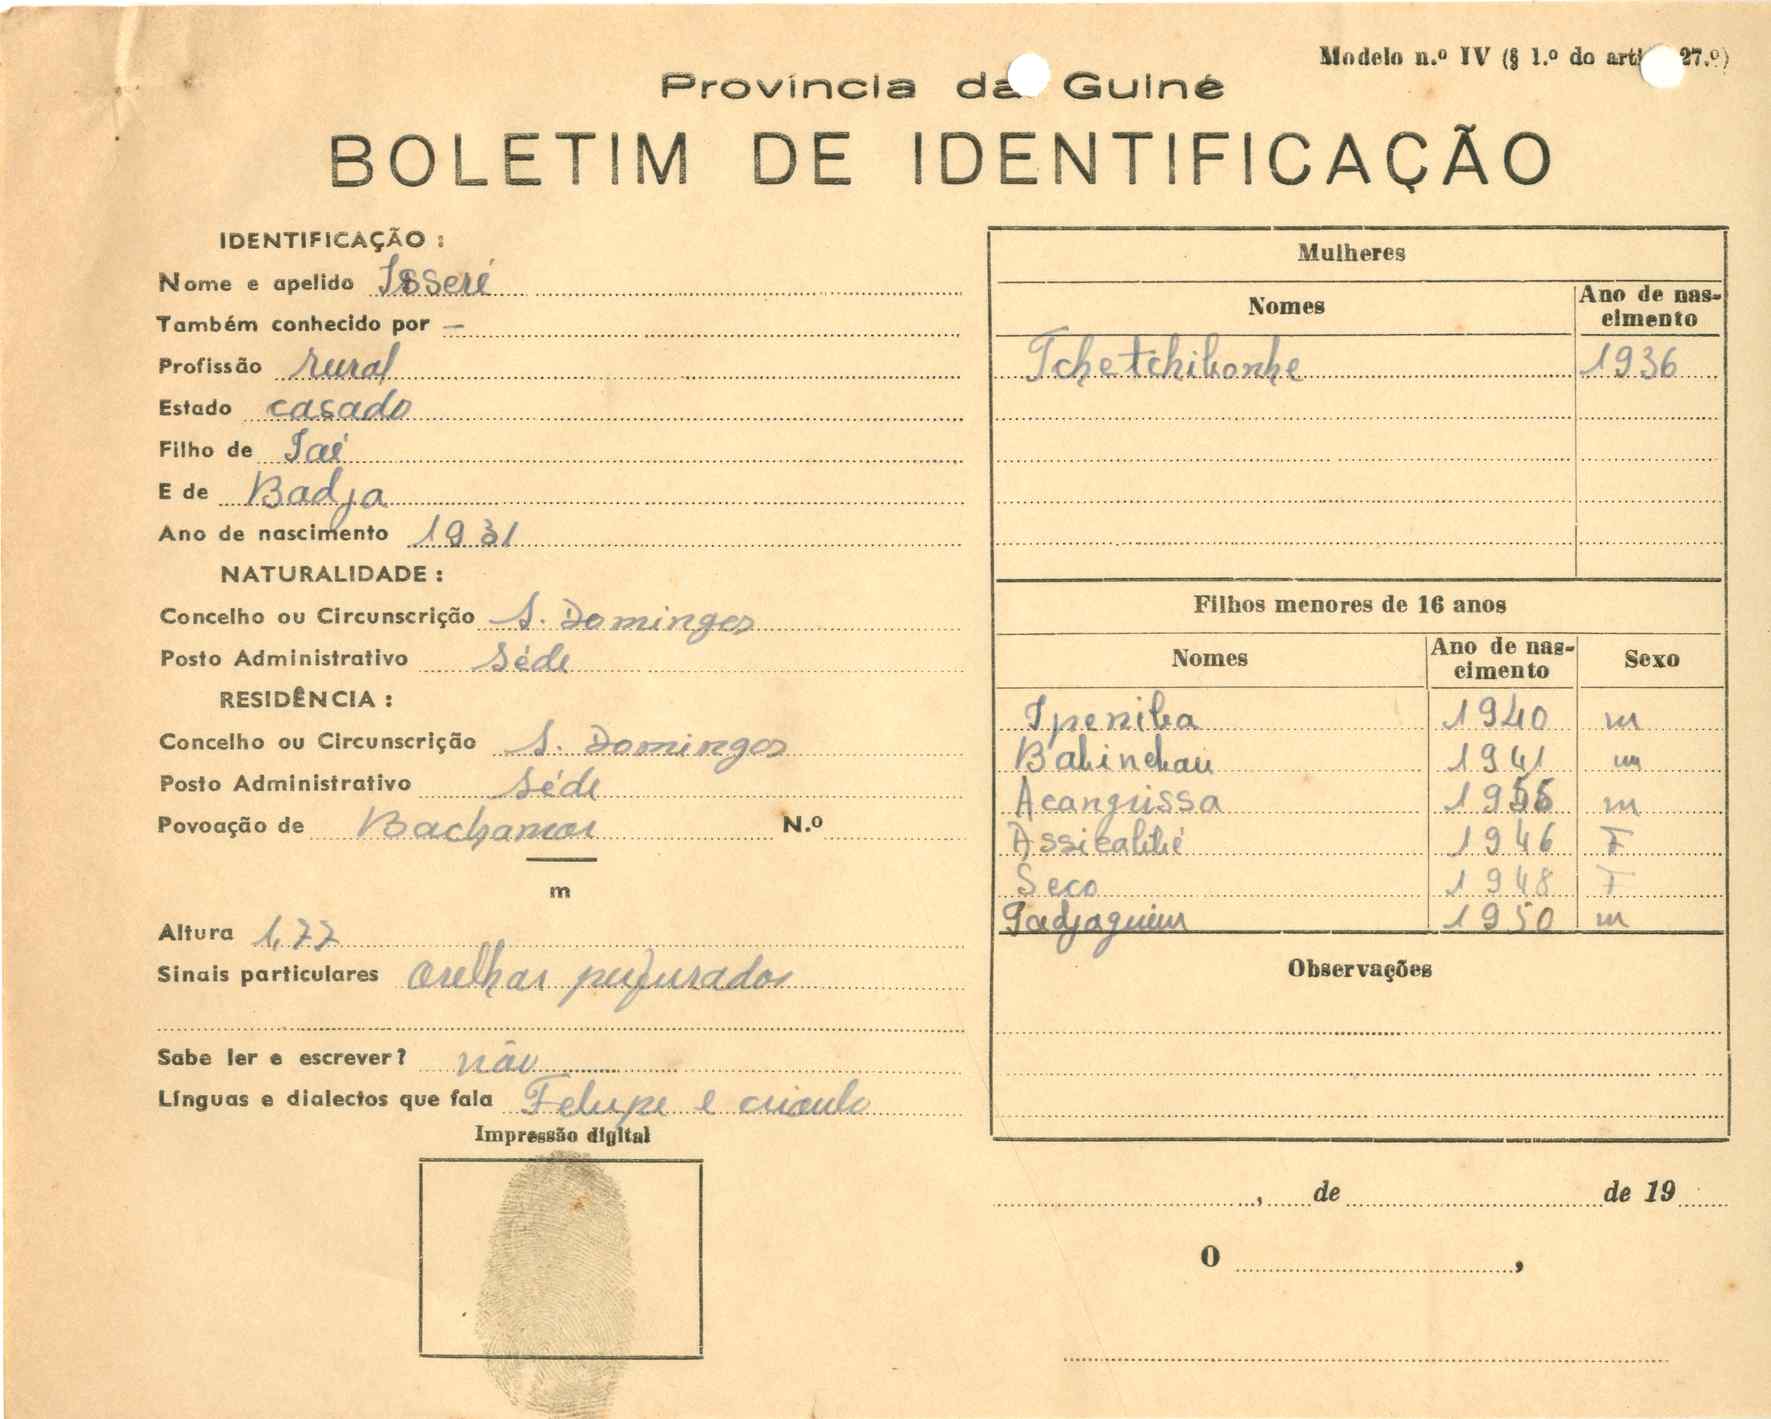 Modelo n.º IV (§ 1.º do arti 27.º)
Província da Guiné
BOLETIM DE IDENTIFICAÇÃO
IDENTIFICAÇÃO :
Nome e apelido Isseré
Também conhecido por —
Profissão rural
Estado casado
Filho de
E de Badja
Ano de nascimento 1931
NATURALIDADE :
Concelho ou Circunscrição S. Domingos
Posto Administrativo Séde
RESIDÊNCIA :
Concelho ou Circunscrição S. Domingos
Posto Administrativo Séde
Povoação de N.º
m
Altura 1,77
Sinais particulares orelhas
Sabe ler e escrever? não
Línguas e dialectos que fala Felupe e crioulo
Impressão digital
Mulheres
Nomes Ano de nas-
cimento
1936
Filhos menores de 16 anos
Nomes Ano de nas-
cimento Sexo
1940 m
1941 m
Acanguissa m
1946 F
Seco 1948 F
1950 m
Observações
, de de 19
O ,